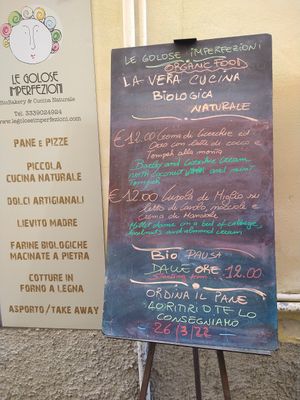 LE GOLOSE
IMPERFEZIONI
BioBakery & Cucina Naturale
Tel. 3339024924
www.legoloseimperfezioni.com
PANE e PIZZE
PICCOLA
CUCINA NATURALE
DOLCI ARTIGIANALI
LIEVITO MADRE
FARINE BIOLOGICHE
MACINATE A PIETRA
COTTURE IN
FORNO A LEGNA
ASPORTO/TAKE AWAY
LE GOLOSE IMPERFEZIONI
ORGANIC FOOD
LA VERA CUCINA
BIOLOGICA
NATURALE
€ 12.00 Crema di Cicerchie ed
Orzo con latte di cocco e
Tempeh alla menta
Barley and Cicerchie Cream
with Coconut Milk and mint
Tempeh
€ 12.00 Cupola di Miglio su
letto di
crema di Mandorle
Millet dome on a bed of cabbage,
hazelnuts and almond cream
BIO PAUSA
DALLE ORE 12.00
Starting from
ORDINA IL PANE
LO RITIRI O TE LO
CONSEGNIAMO
26/3/22